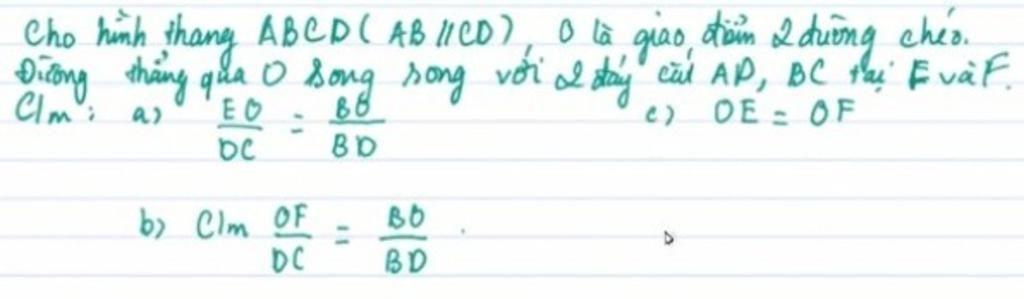 Cho hình thang ABCD ( AB // CD ), O là giao điểm 2 đường chéo.
Đường thẳng qua O song song với 2 đáy cắt AD, BC tại E và F.
C/m : a) EO/DC = BO/BD c) OE = OF
b) C/m OF/DC = BO/BD .